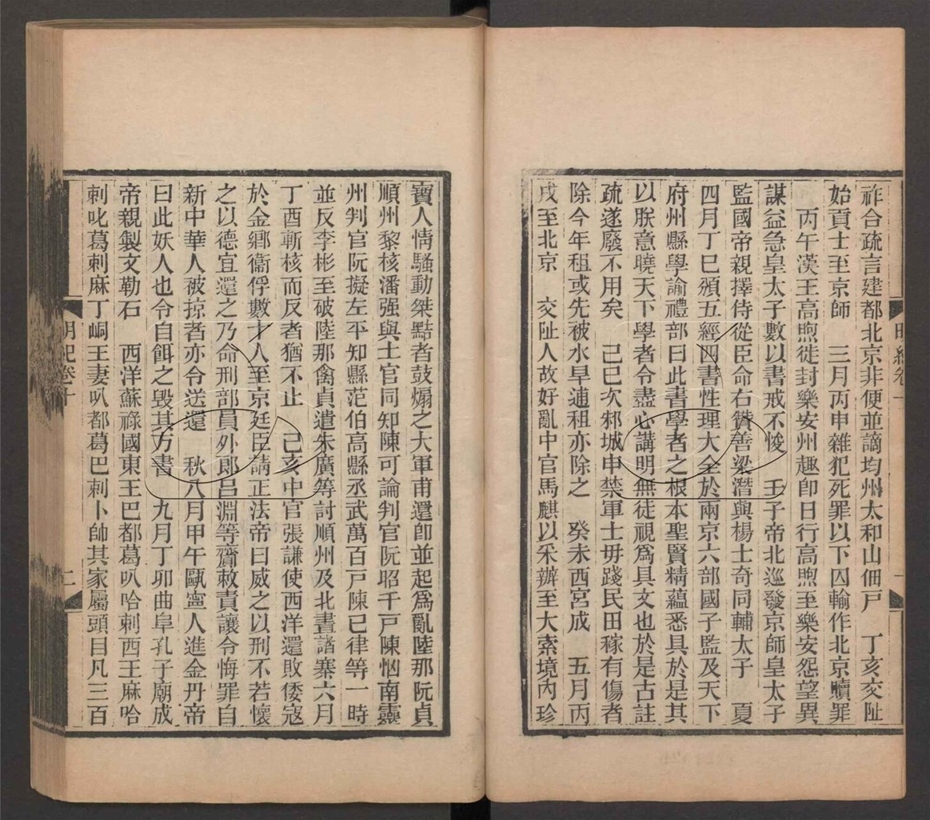 祚合疏言建都北京非便並謫均州太和山佃戶　丁亥交阯
始貢士至京師　三月丙申雜犯死罪以下囚輸作北京贖罪
丙午漢王高煦徙封樂安州趣卽日行高煦至樂安怨望異
謀益急皇太子數以書戒不悛　壬子帝北巡發京師皇太子
監國帝親擇侍從臣命右贊善梁潛與楊士奇同輔太子　夏
四月丁巳頒五經四書性理大全於兩京六部國子監及天下
府州縣學諭禮部曰此書學者之根本聖賢精蘊悉具於是其
以朕意曉天下學者令盡心講明無徒視爲具文也於是古註
疏遂廢不用矣　己巳次邾城申禁軍士毋踐民田稼有傷者
除今年租或先被水旱逋租亦除之　癸未西宮成　五月丙
戌至北京　交阯人故好亂中官馬騏以采辦至大索境內珍
寶人情騷動桀黠者鼓煽之大軍甫還卽並起爲亂陸那阮貞
順州黎核潘强與土官同知陳可論判官阮昭千戶陳㤏南靈
州判官阮擬左平知縣范伯高縣丞武萬百戶陳已律等一時
並反李彬至破陸那禽貞遣朱廣等討順州及北晝諸寨六月
丁酉斬核而反者猶不止　己亥中官張謙使西洋還敗倭寇
於金鄉衞俘數十人至京廷臣請正法帝曰威之以刑不若懷
之以德宜還之乃命刑部員外郞呂淵等齎敕責讓令悔罪自
新中華人被掠者亦令送還　秋八月甲午甌寧人進金丹帝
曰此妖人也令自餌之毀其方書　九月丁卯曲阜孔子廟成
帝親製文勒石　西洋蘇祿國東王巴都葛叭哈剌西王麻哈
剌叱葛剌麻丁峒王妻叭都葛巴剌卜帥其家屬頭目凡三百
明紀卷十
二